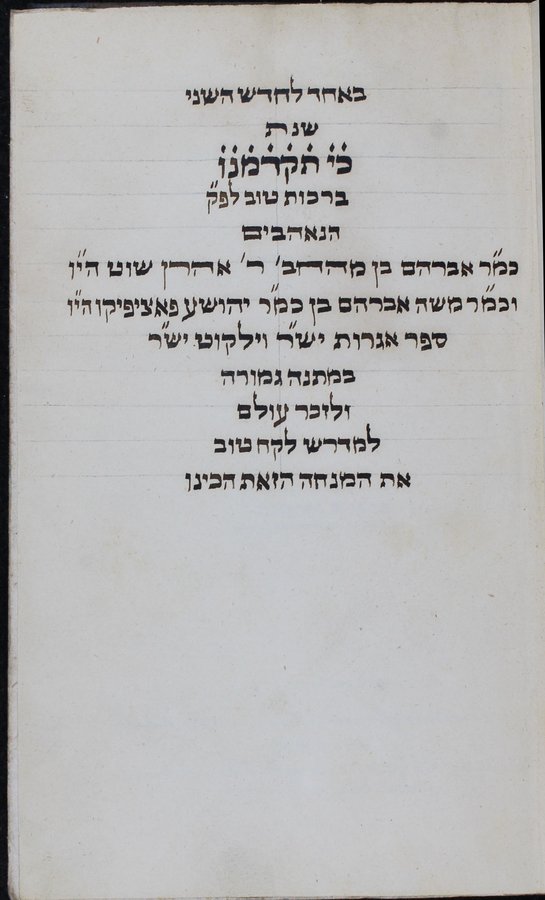 באחד לחדש השני
שנת
כ֗י֗ ת֗ק֗ד֗מ֗נ֗ו֗
ברכות טוב לפ"ק
הנאהבים
כמ"ר אברהם בן מהחב' ר' אהרן שוט הי"ו
וכמ"ר משה אברהם בן כמ"ר יהושע פאציפיקו הי"ו
ספר אגרות יש"ר וילקוט יש"ר
במתנה גמורה
ולזכר עולם
למדרש לקח טוב
את המנחה הזאת הכינו